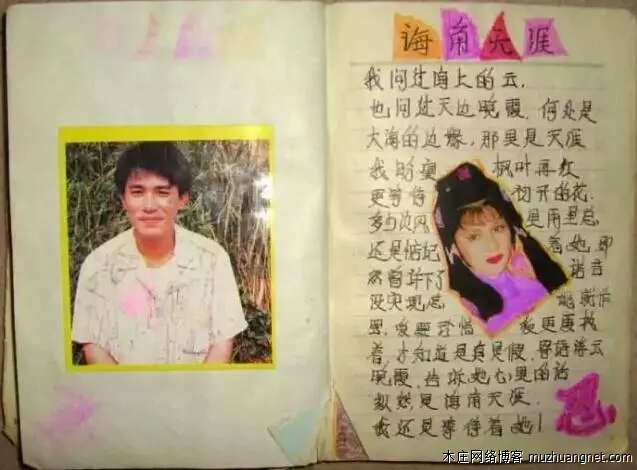 海角天涯
我问过海上的云，
也问过天边晚霞，何处是
大海的边缘，那里是天涯
我盼望 枫叶再红
更等待 初开的花，
多少次风 里雨里总
还是惦记 着她，即
然曾许下了 诺言
没实现总 她就在
里，我要珍惜
着，才知道是真是假，请浮云
晚霞，告诉她心里的话
纵然是海角天涯，
我还是等待着她！
忍
木庄网络博客 muzhuangnet.com